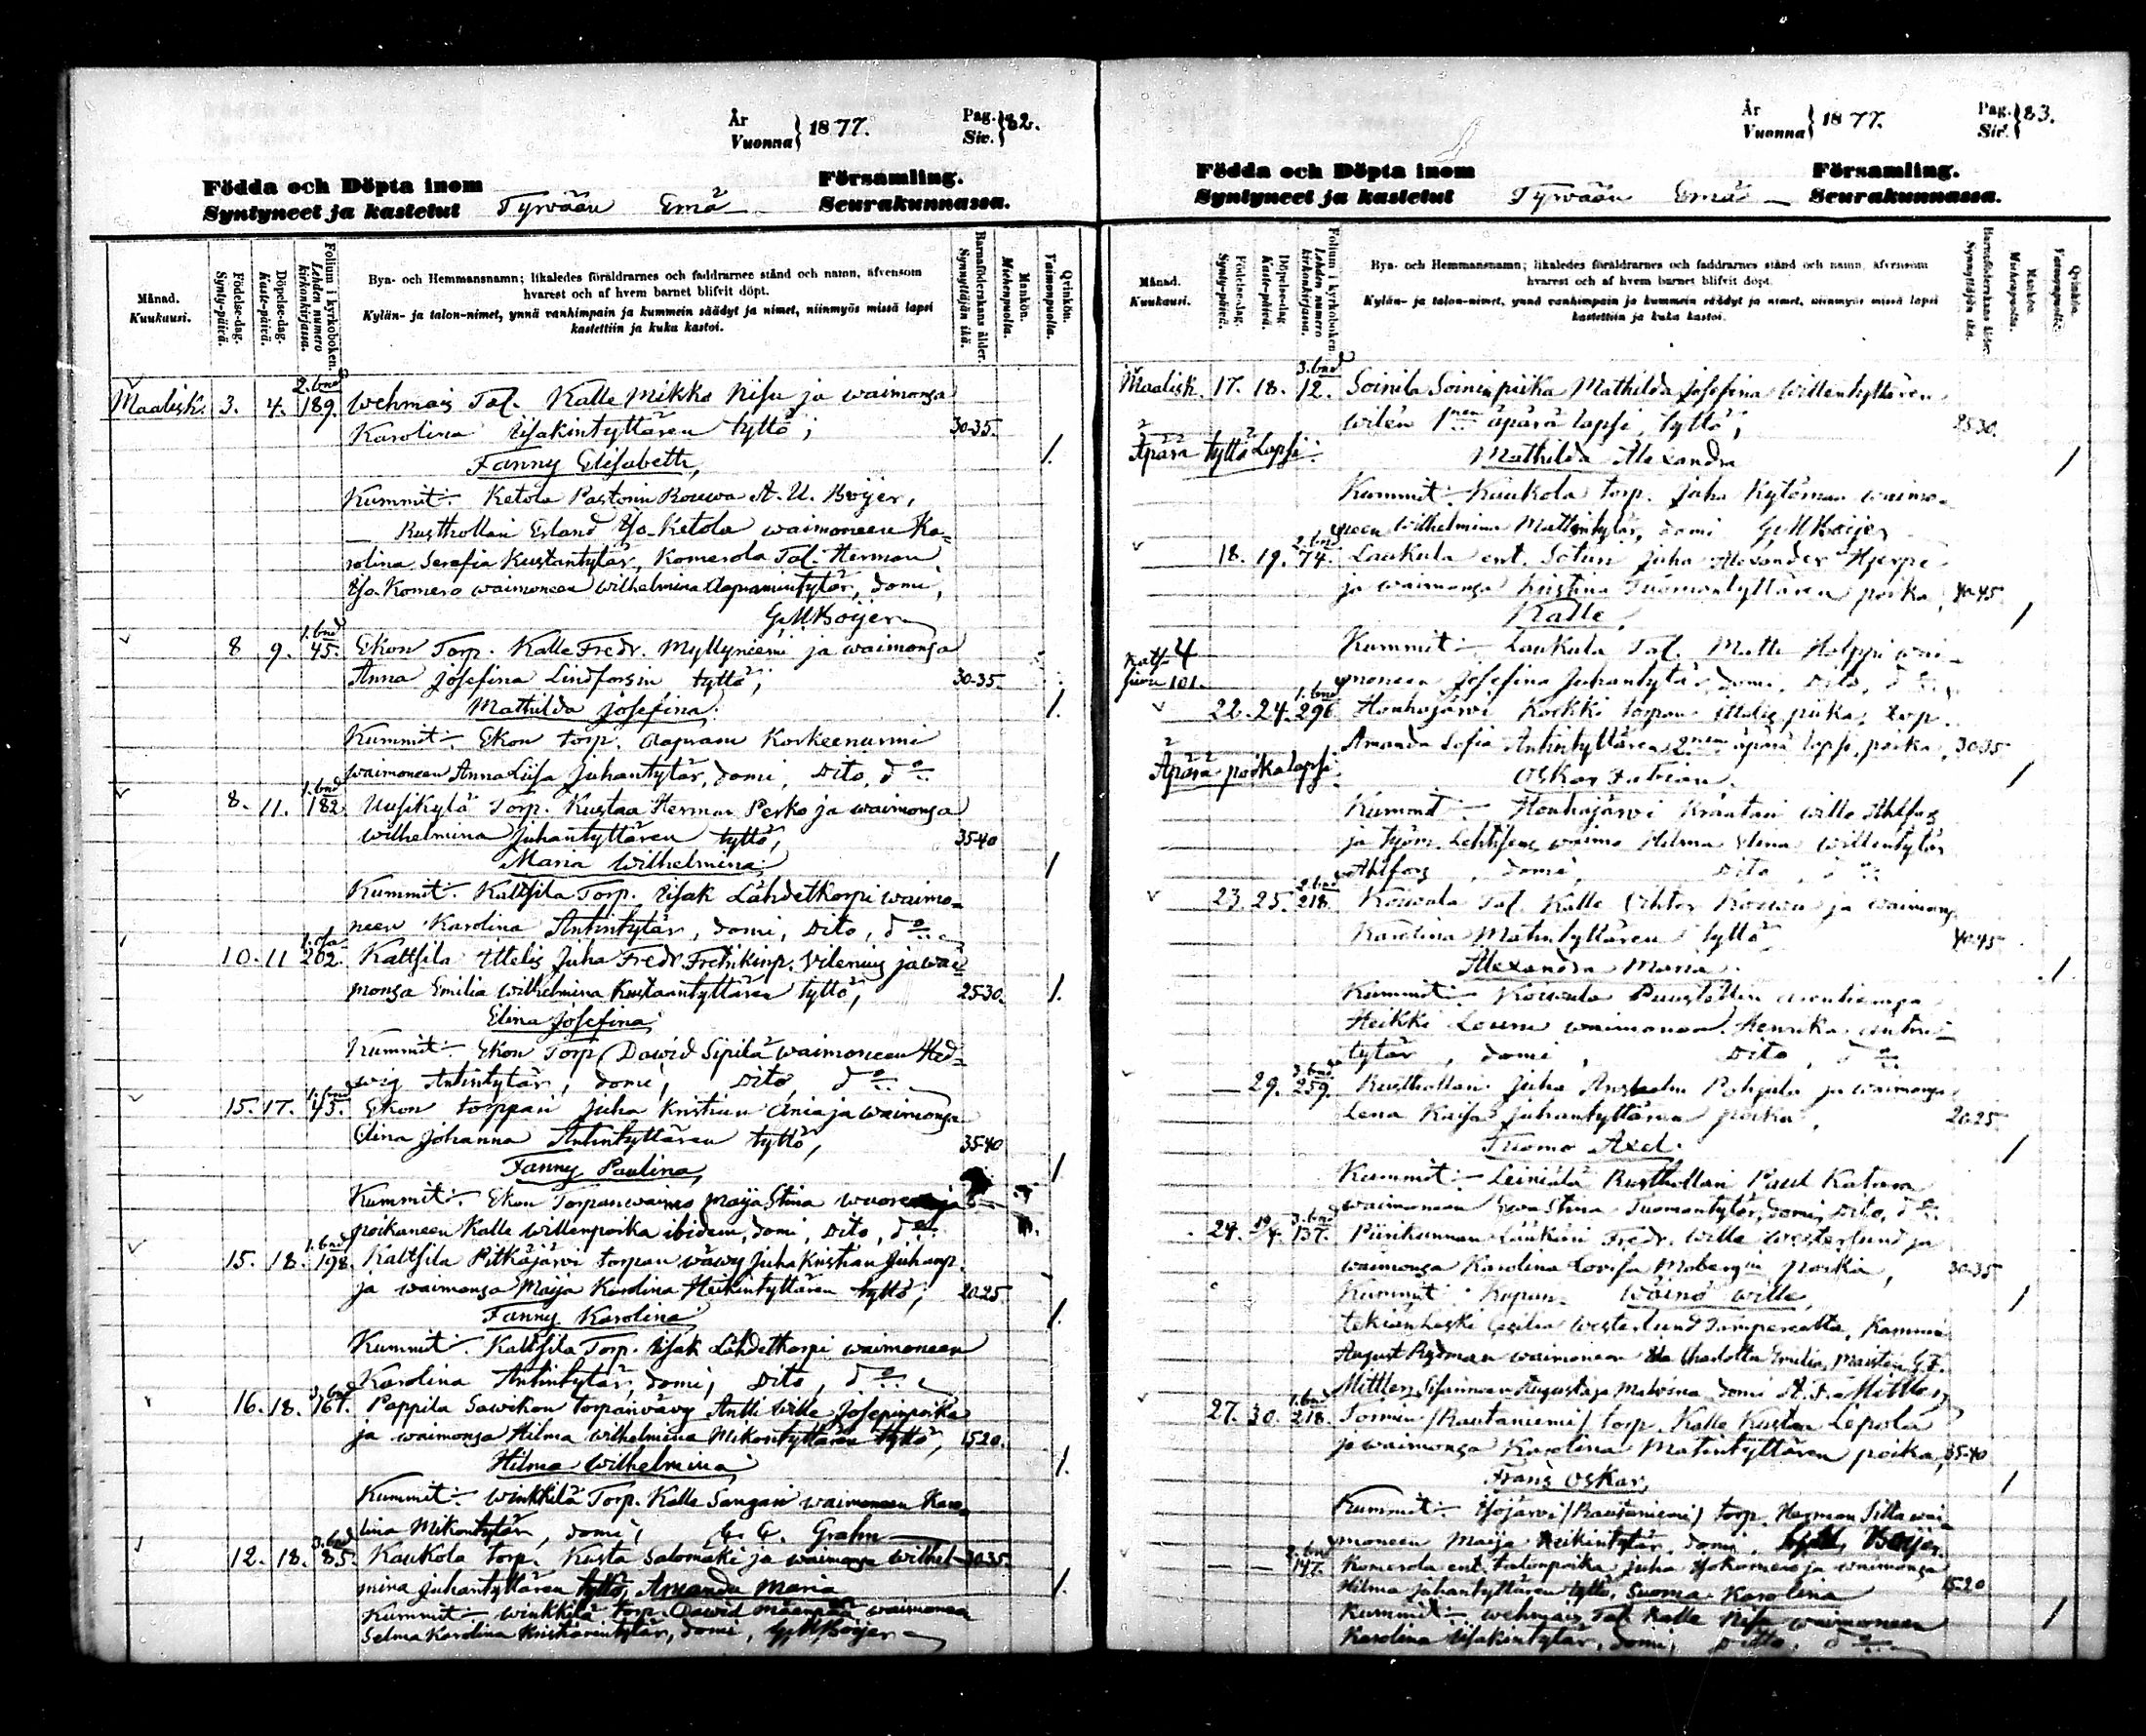 År
Vuonna } 1877.
Pag.
Siv. } 82.
Födda och Döpta inom
Syntyneet ja kastetut Tyrvään Emä
Församling.
Seurakunnassa.
Månad.
Kuukausi.
Födelse-dag.
Synty-päivä.
Döpelse-dag.
Kaste-päivä.
Folium i kyrkoboken.
Lehden numero kirkonkirjassa.
Bya- och Hemmansnamn; likaledes föräldrarnes och faddrarnes stånd och namn, äfvensom
hvarest och af hvem barnet blifvit döpt.
Kylän- ja talon-nimet, ynnä vanhimpain ja kummein säädyt ja nimet, niinmyös missä lapsi
kastettiin ja kuka kastoi.
Barnaföderskans ålder.
Synnyttäjän ikä.
Mankön.
Miehenpuolia.
Qvinkön.
Vaimonpuolia.
2. bnd
Maalisk. 3. 4. 189. Wehmais Tal. Kalle Mikko Nisu ja waimonsa
Karolina Iisakintyttären tyttö; 30-35.
Fanny Elisabeth, 1.
Kummit:- Ketola Pastorin Rouwa A. U. Boijer,
Rusthollari Erland Yso-Ketola waimoneen Ka=
rolina Serafia Kustantytär, Komerola Tal. Herman
Yso-Komero waimoneen Wilhelmina Aapramintytär, domi,
G. M. Boijer
1. bnd
8 9. 45. Ekon Torp. Kalle Fredr. Myllyniemi ja waimonsa
Anna Josefina Lindforsin tyttö; 30-35.
Mathilda Josefina. 1.
Kummit:- Ekon torp. Aapram Korkeenurmi
waimoneen Anna Liisa Juhantytär, domi, Dito, do
1. bnd
8. 11. 182. Uusikylä Torp. Kustaa Herman Perko ja waimonsa
Wilhelmina Juhantyttären tyttö, 35-40
Maria Wilhelmina; 1
Kummit:- Kaltsila Torp. Iisak Lähdetkorpi waimo=
neen Karolina Antintytär, domi, Dito, do
10. 11 202. Kaltsila Juha Fredr. Fredrikinp. Vilenius ja wai
monsa Emilia Wilhelmina Kustaantyttären tyttö, 25-30. 1.
Elina Josefina;
Kummit:- Ekon Torp. Dawid Sipilä waimoneen Hed=
wig Antintytär, domi, Dito do
15. 17. 45. Ekon torppari Juha Kristian Ania ja waimonsa
Elina Johanna Antintyttären tyttö, 35-40
Fanny Paulina, 1
Kummit:- Ekon Torpan waimo Maija Stina
poikaneen Kalle Willenpoika ibidem, domi, Dito, do
1. bnd
15. 18. 198. Kaltsila Pitkäjärvi torpan wäwy Juha Kristian Juhanp.
ja waimonsa Maija Karolina Heikintyttären tyttö, 20-25.
Fanny Karolina; 1.
Kummit:- Kaltsila Torp. Iisak Lähdetkorpi waimoneen
Karolina Antintytär, domi, Dito, do
16. 18. 167. Pappila Sawikon torpanvävy Antti Wille Josepinpoika
ja waimonsa Hilma Wilhelmina Mikontyttären tyttö, 15-20.
Hilma Wilhelmina; 1.
Kummit:- Winkkilä Torp. Kalle Sangari waimoneen Karo=
lina Mikontytär, domi, Grahn
3. bnd
12. 18. 85. Kaukola torp. Kusta Salomäki ja waimonsa Wilhel- 30-35.
mina Juhantyttären tyttö, Amanda Maria 1.
Kummit:- Winkkilä torp. Dawid Mäenpää waimoneen
Selma Karolina Kristianintytär, domi, G. M. Boijer
År
Vuonna } 1877.
Pag.
Siv. } 83.
Födda och Döpta inom
Syntyneet ja kastetut Tyrvään Emä
Församling.
Seurakunnassa.
Månad.
Kuukausi.
Födelse-dag.
Synty-päivä.
Döpelse-dag.
Kaste-päivä.
Folium i kyrkoboken.
Lehden numero kirkonkirjassa.
Bya- och Hemmansnamn; likaledes föräldrarnes och faddrarnes stånd och namn, äfvensom
hvarest och af hvem barnet blifvit döpt.
Kylän- ja talon-nimet, ynnä vanhimpain ja kummein säädyt ja nimet, niinmyös missä lapsi
kastettiin ja kuka kastoi.
Barnaföderskans ålder.
Synnyttäjän ikä.
Mankön.
Miehenpuolia.
Qvinkön.
Vaimonpuolia.
3. bnd
Maalisk. 17. 18. 12. Soinila Soini piika Mathilda Josefina Willentyttären
Wilén 1nen äpärä lapsi, tyttö, 25-30.
Äpärä tyttö Lapsi:- Mathilda Alexandra 1
Kummit:- Kuukola torp. Juha Kytömaa waimo=
neen Wilhelmina Mattintytär, domi G. M. Boijer
2. bnd
18. 19. 74. Laukula ent. Sotun Juha Alexander Hjerpe
ja waimonsa Kristina Tuomontyttären poika, 40-45
Kalle, 1
Kummit:- Laukula Tal. Matti Halppi wai=
moneen Josefina Juhantytär, domi, Dito, do
1. bnd
22. 24. 296. Honhajärvi Korkki torpan piika,
Amanda Sofia Antintyttären 2nen äpärä lapsi, poika, 30-35
Äpärä poika lapsi. Oskar Fabian. 1
Kummit:- Honhajärvi Kräätäri Wille Ahlfors
ja waimo Hilma Stina Willentytär
Ahlfors, domi, Dito, do
2. bnd
23. 25. 218. Kouwala Tal. Kalle Vihtor Kouwu ja waimonsa
Karolina Matintyttären tyttö 40-45
Alexandra Maria. 1
Kummit:- Kouwala
Heikki waimoneen Henrika Antin=
tytär, domi, Dito, do
— 29. 259. Rusthollari Juha Anshelm Pohjala ja waimonsa
Lena Kaisa Juhantyttären poika, 20-25
Tuomo Axel. 1
Kummit:- Leiniälä Rusthollari Paul Katara
waimoneen Ewa Stina Tuomontytär, domi, Dito, do
3. bnd
24. 137. Piirikunnan Lääkäri Fredr. Wille Westerlund ja
waimonsa Karolina Lovisa Mobergin poika, 30-35
Kummit: Wäinö Wille, 1
tekiän Leski Cecilia Westerlund Tampereelta,
August Rydman waimoneen Ida Charlotta Emilia, Maisteri G. F.
Mittler, Augusta ja Malvina, domi Mittler
1. bnd
27. 30. 218. Tormin /Rautaniemi/ torp. Kalle Kustaa Lepola
ja waimonsa Karolina Matintyttären poika, 35-40
Frans Oskar, 1
Kummit:- /Rautaniemi/ torp. Herman wai=
moneen Maija Heikintytär, domi, Boijer.
2. bnd
— — 147. Komerola ent. talonpoika Juha Yso-Komero ja waimonsa
Hilma Juhantyttären tyttö, Suoma Karolina 15-20
Kummit:- Wehmais Tal. Kalle Nisu waimoneen 1
Karolina Iisakintytär, domi, Ditto, do